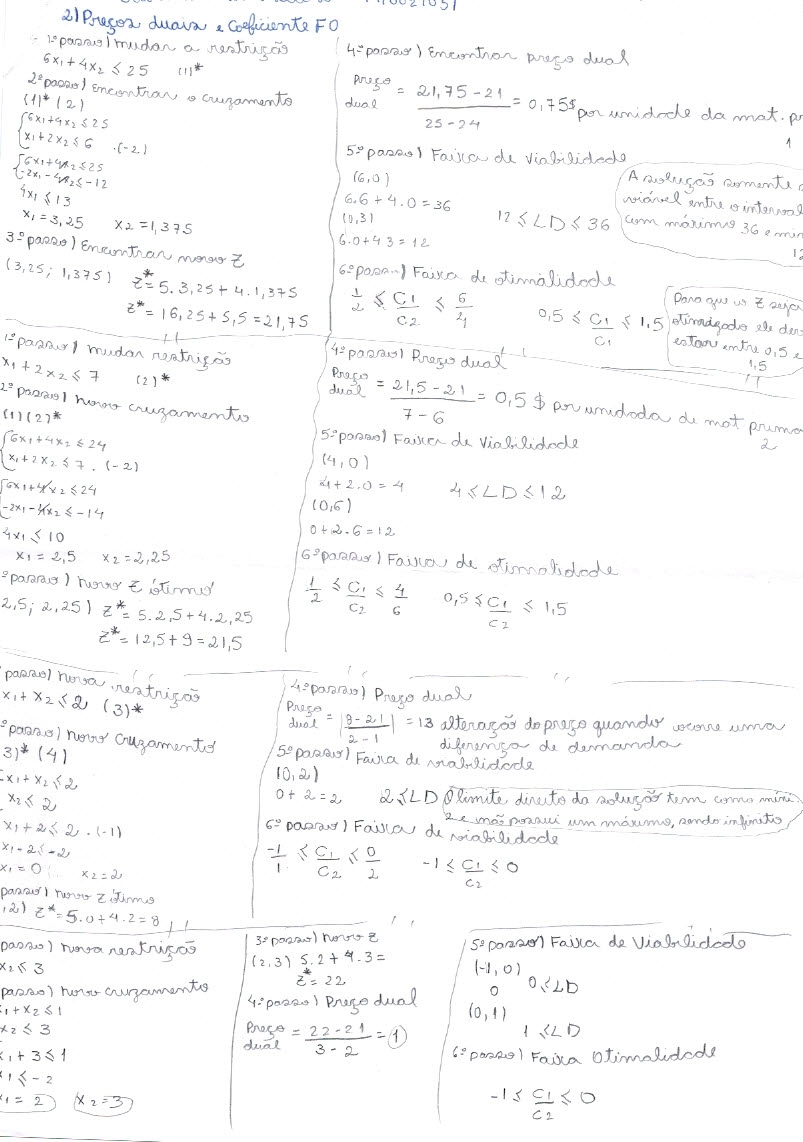 2) Preços duais e Coeficiente FO
1º passo) mudar a restrição
6x₁ + 4x₂ ≤ 25 (1)*
2º passo) encontrar o cruzamento
(1)* (2)
6x₁+4x₂ ≤ 25
x₁+2x₂ ≤ 6 .(-2)
6x₁+4x₂ ≤ 25
-2x₁-4x₂ ≤ -12
4x₁ ≤ 13
x₁ = 3,25 x₂ = 1,375
3º passo) Encontrar novo Z
(3,25; 1,375) Z* = 5.3,25 + 4.1,375
Z* = 16,25 + 5,5 = 21,75
4º passo) Encontrar preço dual
Preço dual = 21,75 - 21 / 25 - 24 = 0,75$ por unidade da mat. pr
1
5º passo) Faixa de Viabilidade
(6,0)
6.6 + 4.0 = 36
(0,3)
6.0 + 4 3 = 12
12 ≤ LD ≤ 36
A solução somente
viável entre o interval
com máximo 36 e min
12
6º passo) Faixa de otimalidade
1/2 ≤ C₁/C₂ ≤ 6/4 0,5 ≤ C₁/C₁ ≤ 1,5
Para que o Z seja
otimizado ele de
estar entre 0,5 e
1,5
1º passo) mudar restrição
x₁ + 2x₂ ≤ 7 (2)*
2º passo) novo cruzamento
(1)(2)*
6x₁+4x₂ ≤ 24
x₁+2x₂ ≤ 7 .(-2)
6x₁+4x₂ ≤ 24
-2x₁-4x₂ ≤ -14
4x₁ ≤ 10
x₁ = 2,5 x₂ = 2,25
º passo) novo Z ótimo
2,5; 2,25) Z* = 5.2,5 + 4.2,25
Z* = 12,5 + 9 = 21,5
4º passo) Preço dual
Preço dual = 21,5 - 21 / 7 - 6 = 0,5 $ por unidada de mat prima
2
5º passo) Faixa de Viabilidade
(4,0)
4 + 2.0 = 4 4 ≤ LD ≤ 12
(0,6)
0 + 2.6 = 12
6º passo) Faixa de otimalidade
1/2 ≤ C₁/C₂ ≤ 4/6 0,5 ≤ C₁/C₂ ≤ 1,5
passo) nova restrição
x₁ + x₂ ≤ 2 (3)*
º passo) novo cruzamento
3)* (4)
x₁ + x₂ ≤ 2
x₂ ≤ 2
x₁ + 2 ≤ 2 .(-1)
x₁ - 2 ≤ -2
x₁ = 0 x₂ = 2
passo) novo Z ótimo
,2) Z* = 5.0 + 4.2 = 8
4º passo) Preço dual
Preço dual = |8 - 21 / 2 - 1| = 13 alteração do preço quando ocorre uma
diferença de demanda
5º passo) Faixa de viabilidade
(0,2)
0 + 2 = 2 2 ≤ LD O limite direito da solução tem como míni
2 e não possui um máximo, sendo infinito
6º passo) Faixa de viabilidade
-1/1 ≤ C₁/C₂ ≤ 0/2 -1 ≤ C₁/C₂ ≤ 0
passo) nova restrição
x₂ ≤ 3
passo) novo cruzamento
x₁ + x₂ ≤ 1
x₂ ≤ 3
x₁ + 3 ≤ 1
x₁ ≤ -2
x₁ = 2 x₂ = 3
3º passo) novo Z
(2,3) 5.2 + 4.3 =
Z* = 22
4º passo) Preço dual
Preço dual = 22 - 21 / 3 - 2 = 1
5º passo) Faixa de Viabilidade
(-1,0)
0 0 ≤ LD
(0,1)
1 ≤ LD
6º passo) Faixa Otimalidade
-1 ≤ C₁/C₂ ≤ 0